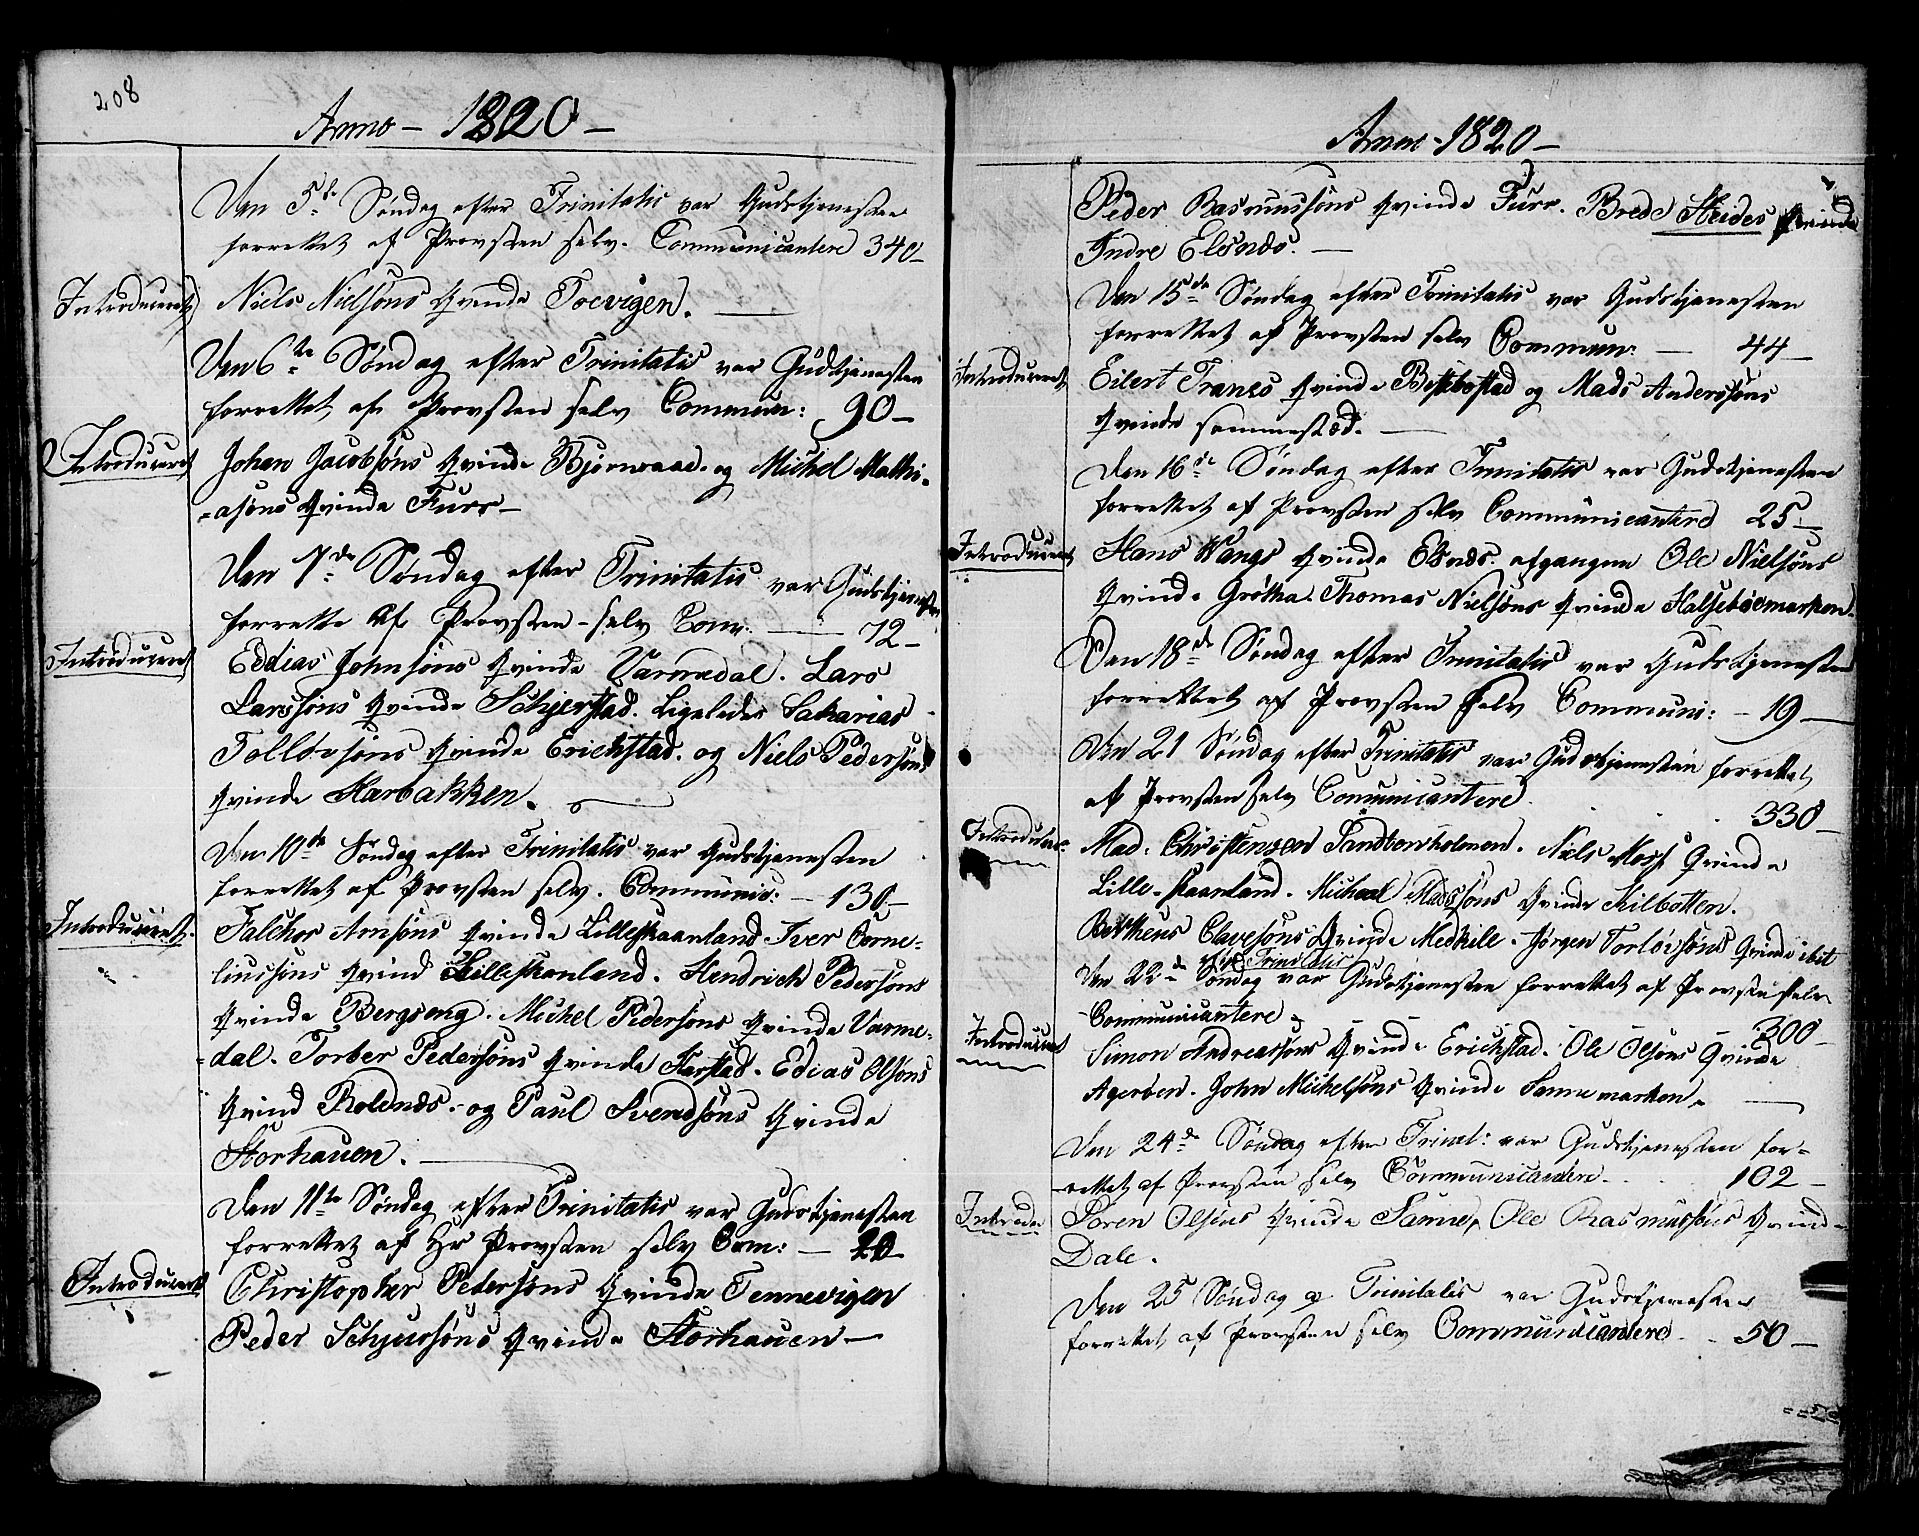 208
Anno - 1820 -
Den 5te Søndag efter Trinitatis var Gudstjenesten
forrettet af Provsten selv. Communicantere 340-
Introduceret Niels Nielsøns Qvinde Toevigen.
Den 6te Søndag efter Trinitatis var Gudstjenesten
forrettet af Provsten selv Commun: 90-
Introduceret Johan Jacobsøns Qvinde Bjørnraae. og Michel Mathi-
-asøns Qvinde Furr-
Den 7de Søndag efter Trinitatis var Gudstjenesten
forrette af Provsten - selv Com: 72-
Introduceret Eddias Johnsøns Qvinde Varmedal. Lars
Larssøns Qvinde Schjerstad. Ligeledes Sakarias
Tolløvsøns Qvinde Erichstad. og Niels Pedersøns
Qvinde Harbakken.
Den 10de Søndag efter Trinitatis var Gudstjenesten
forrettet af Provsten selv. Communic: - 130-
Introduceret Falchor Arnsøns Qvinde Lilleskaanland Iver Corne-
liussøns Qvind Lilleskanland. Hendrich Pedersøns
Qvinde Bergseng. Michel Pedersøns Qvinde Varme-
-dal. Torber Pedersøns Qvinde Harstad. Edias Olsøns
Qvind Roldnæs. og Paul Svendsøns Qvinde
Storhauen.
Den 11te Søndag efter Trinitatis var Gudstjenesten
forrettet af Hr Provsten selv Com: - 20
Introduceret Christopher Pedersøns Qvinde Tennevigen
Peder Schjursøns Qvinde Storhauen-
Anno - 1820 -
Peder Rasmussøns Qvinde Furr. Brede Heides Qvinde
Indre Elsnæs. -
Den 15de Søndag efter Trinitatis var Gudstjenesten
forrettet af Provsten selv Commun: - 44-
Introduceret Eilert Tranes Qvinde Bessebostad og Mads Anderssøns
Qvinde sammestæd. -
Den 16de Søndag efter Trinitatis var Gudstjenesten
forrettet af Provsten selv Communicantere 25-
Introduceret Hans Wangs Qvinde Elsnæs. afgangne Ole Nielsøns
Qvinde Grøtha. Thomas Nielsøns Qvinde Halsebøemarken.
Den 18de Søndag efter Trinitatis var Gudstjenesten
forrettet af Provsten selv Communi: - 19-
Den 21 Søndag efter Trinitatis var Gudstjenesten forrettet
af Provsten selv Comunicantere. 330-
Introducer. Mad. Christensen Sandtorvholmen. Niels Moss Qvinde
Lille-skaanland. Michael Madssøns Qvinde Kilbotten.
Bertheus Clavesøns Qvinde Medkille. Jørgen Torløvsøns Qvinde ibit
Den 22de Søndag efter Trinitatis var Gudstjenesten forrettet af Provsten selv
Communicantere - 300-
Introduceret Simon Andreassøns Qvinde Erichstad. Ole Olsøns Qvinde
Agerben. John Michelsøns Qvinde Sannemarken.
Den 24de Søndag efter Trinit: var Gudstjenesten for-
-rettet af Provsten selv Communicanten. 102-
Introdu Søren Olsøns Qvinde Sanne, Ole Rasmussøns Qvind-
Dale.
Den 25 Søndag e Trinitatis var Gudstjenesten
forrettet af Provsten selv Communicantere. - 50-